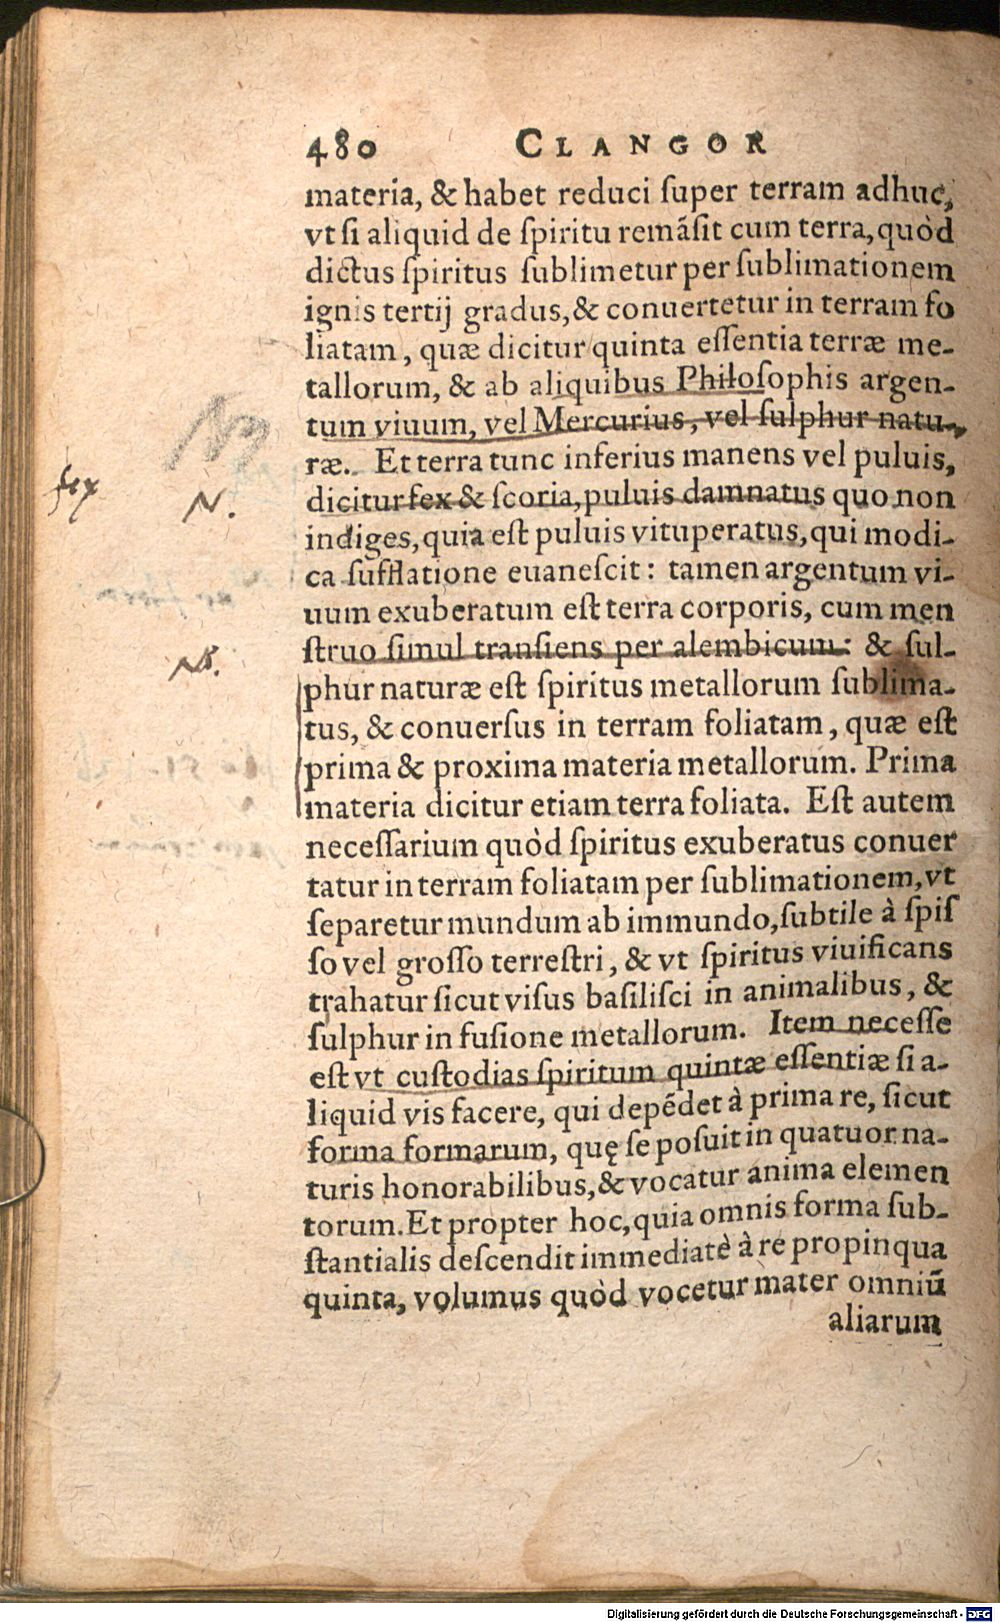 480 CLANGOR
materia, & habet reduci ſuper terram adhuc,
vt ſi aliquid de ſpiritu remãſit cum terra, quòd
dictus ſpiritus ſublimetur per ſublimationem
ignis tertij gradus, & conuertetur in terram fo
liatam, quæ dicitur quinta eſſentia terræ me-
tallorum, & ab aliquibus Philoſophis argen-
tum viuum, vel Mercurius, vel ſulphur natu-
ræ. Et terra tunc inferius manens vel puluis,
fex
N.
dicitur fex & ſcoria, puluis damnatus quo non
indiges, quia eſt puluis vituperatus, qui modi-
ca ſufflatione euaneſcit: tamen argentum vi-
uum exuberatum eſt terra corporis, cum men
ſtruo ſimul tranſiens per alembicum: & ſul-
NB.
phur naturæ eſt ſpiritus metallorum ſublima-
tus, & conuerſus in terram foliatam, quæ eſt
prima & proxima materia metallorum. Prima
materia dicitur etiam terra foliata. Eſt autem
neceſſarium quòd ſpiritus exuberatus conuer
tatur in terram foliatam per ſublimationem, vt
ſeparetur mundum ab immundo, ſubtile à ſpiſ
ſo vel groſſo terreſtri, & vt ſpiritus viuificans
trahatur ſicut viſus baſiliſci in animalibus, &
ſulphur in fuſione metallorum. Item neceſſe
eſt vt cuſtodias ſpiritum quintæ eſſentiæ ſi a-
liquid vis facere, qui depẽdet à prima re, ſicut
forma formarum, quę ſe poſuit in quatuor na-
turis honorabilibus, & vocatur anima elemen
torum. Et propter hoc, quia omnis forma ſub-
ſtantialis deſcendit immediatè à re propinqua
quinta, volumus quòd vocetur mater omniũ
aliarum
Digitalisierung gefördert durch die Deutsche Forschungsgemeinschaft - DFG